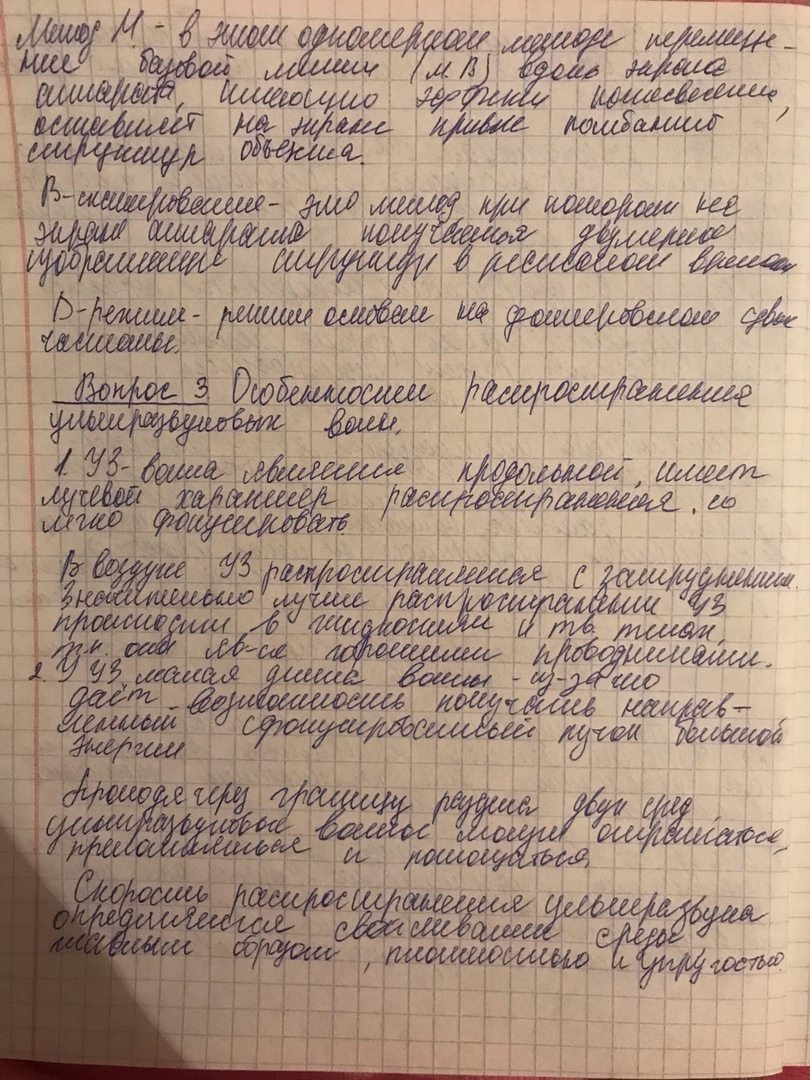 Метод М. - в этом одномерном методе перемеще-
ние базовой линии (М В) вдоль экрана
аппарата, имеющую эффект послесвечения,
оставляет на экране кривые колебаний
структур объекта.
В-сканирование - это метод при котором на
экране аппарата получается двумерное
изображение структур в реальном времени
D-режим - режим основан на доплеровском сдвиге
частоты.
Вопрос 3. Особенности распространения
ультразвуковых волн.
1. УЗ-волна является продольной, имеет
лучевой характер распространения,
легко фокусировать.
В воздухе УЗ распространяется с затруднением.
Значительно лучше распространении УЗ
происходит в жидкостях и тв. телах,
т.к. они яв-ся хорошими проводниками.
2. У УЗ малая длина волны - из-за что
даёт возможность получить направ-
ленный сфокусированный пучок большой
энергии
Проходя через границу раздела двух сред
ультразвуковые волны могут отражаться,
преломляться и поглощаться.
Скорость распространения ультразвука
определяется свойствами среды
главным образом, плотностью и упругостью.